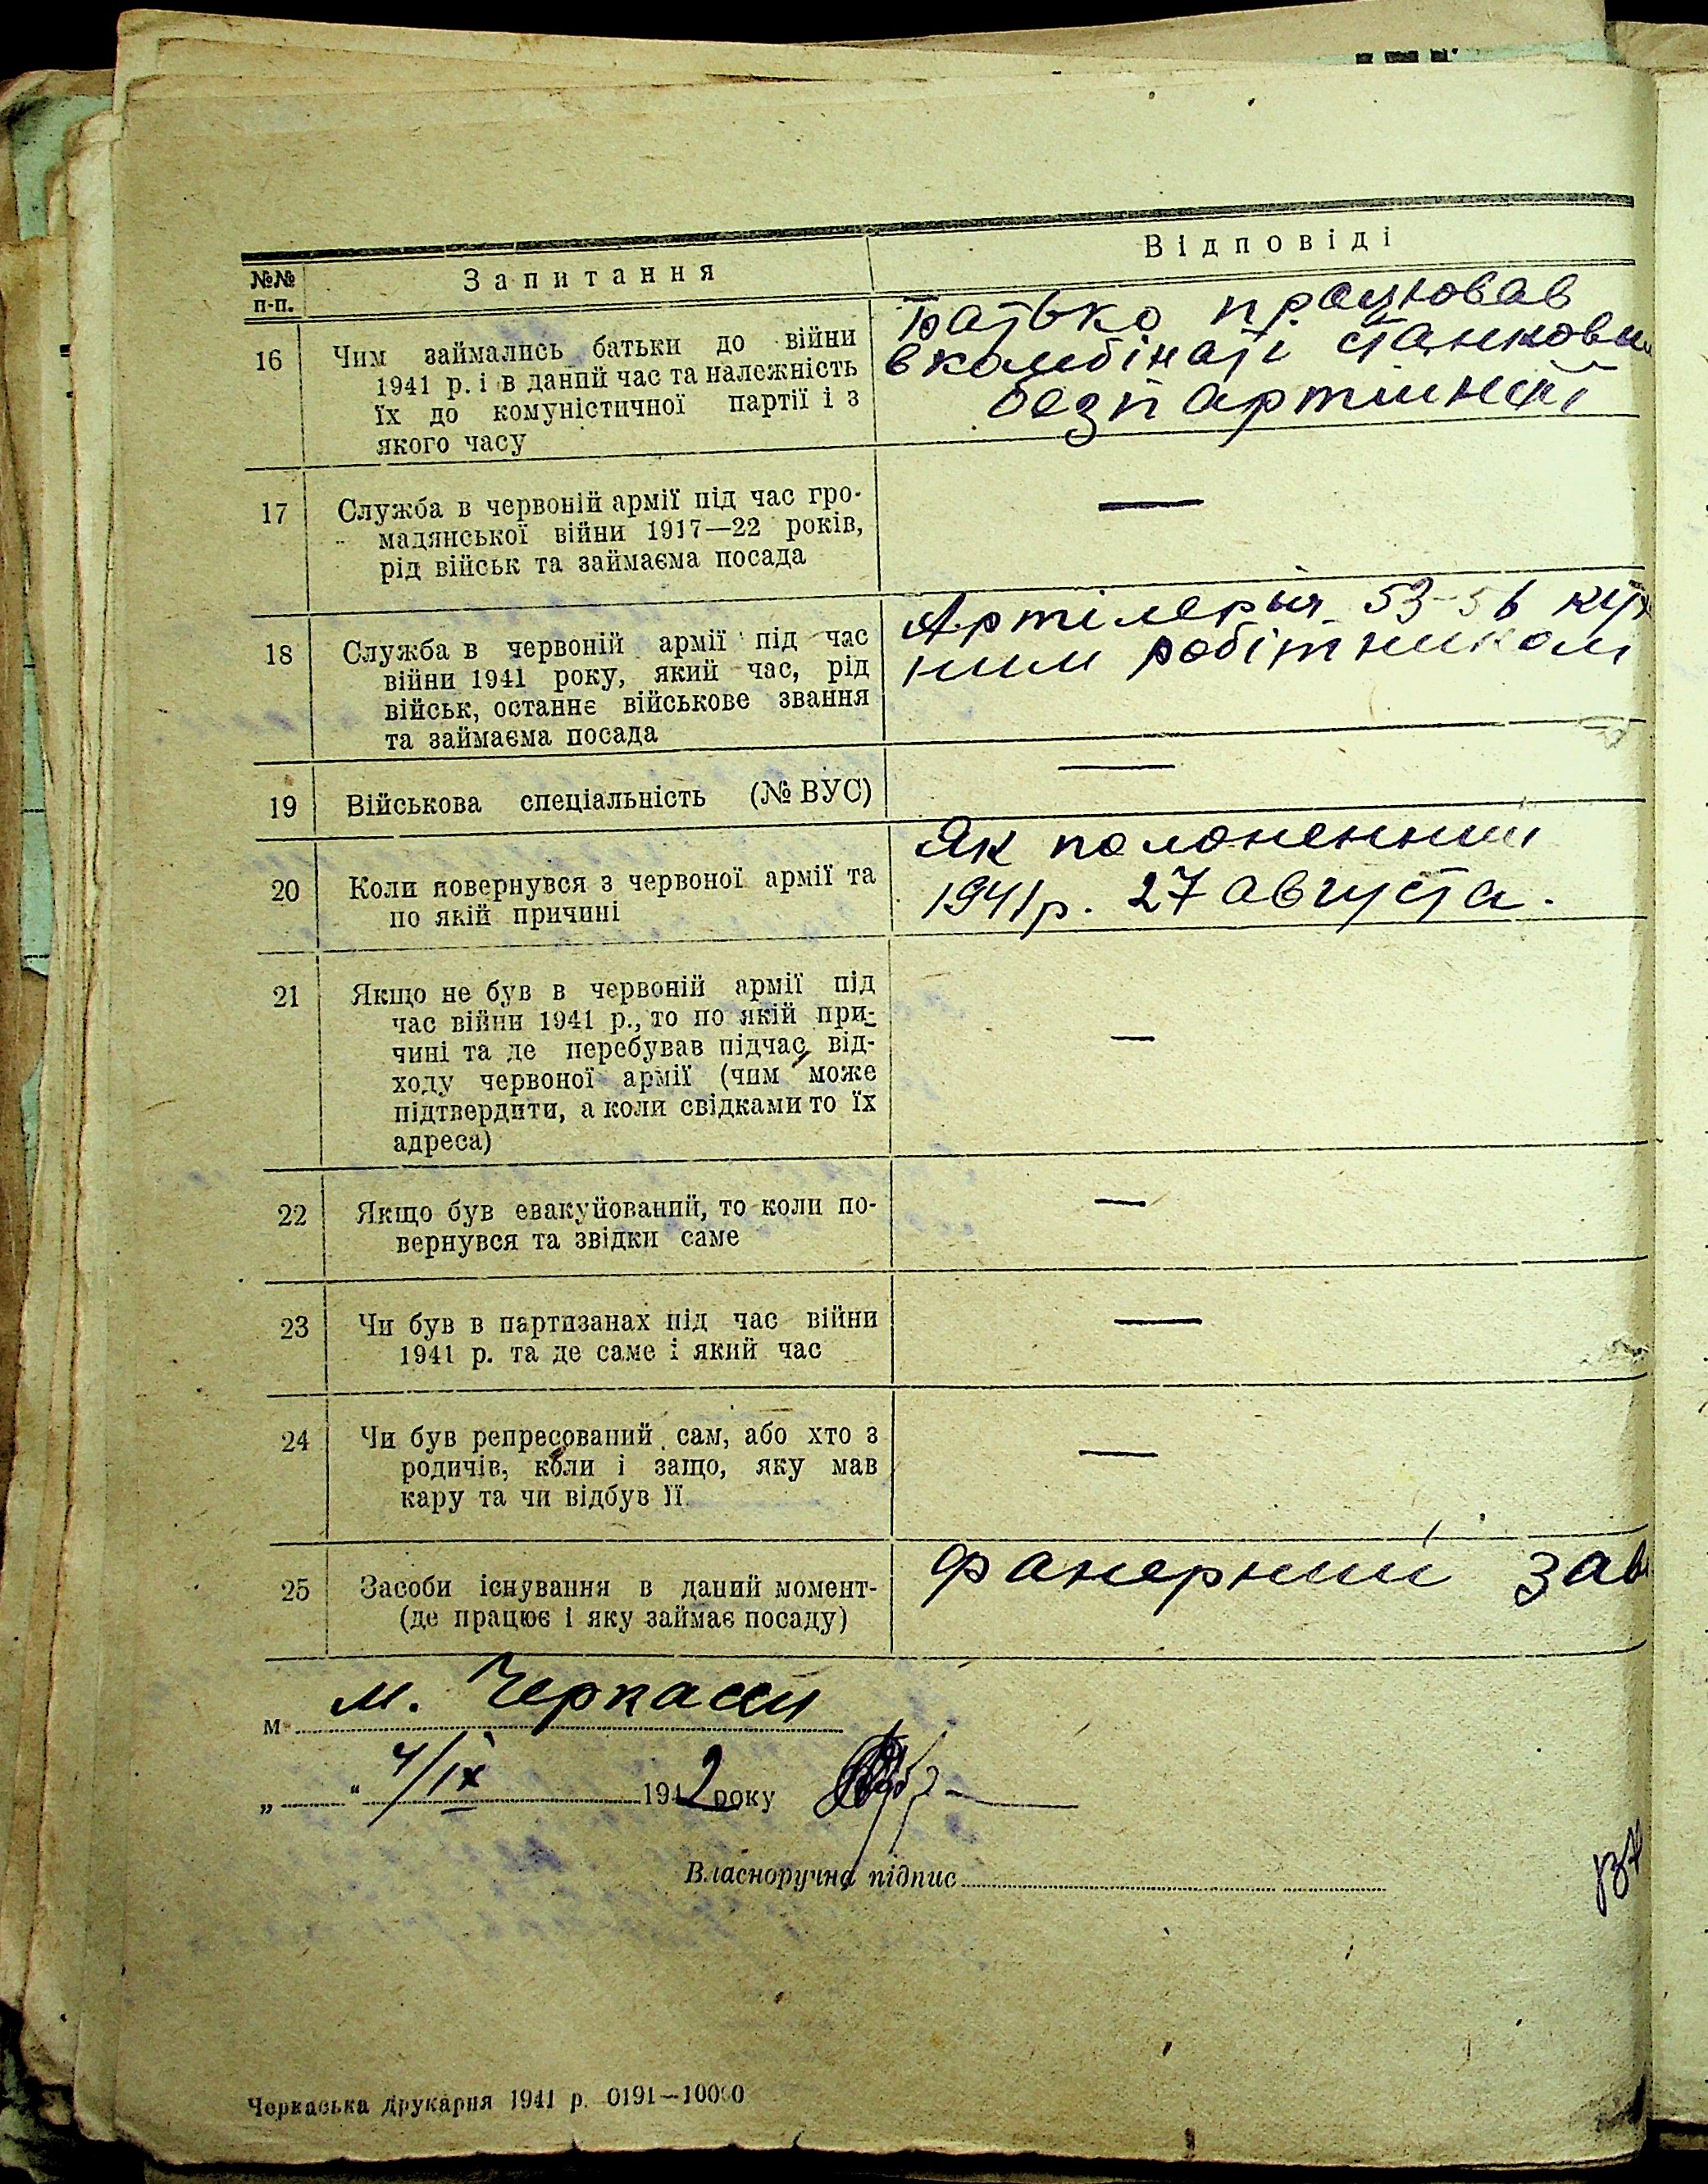 №№
п-п.
Запитання
Відповіді
16
Чим займались батьки до війни
1941 р. і в даний час та належність
їх до комуністичної партії і з
якого часу
Батько працював
в комбінаті
безпартійний
17
Служба в червоній армії під час гро-
мадянської війни 1917—22 років,
рід військ та займаєма посада
—
18
Служба в червоній армії під час
війни 1941 року, який час, рід
військ, останнє військове звання
та займаєма посада
Артілерыя 53
ним робітником
19
Військова спеціальність (№ ВУС)
—
20
Коли повернувся з червоної армії та
по якій причині
Як полоненний
1941 р. 27 августа.
21
Якщо не був в червоній армії під
час війни 1941 р., то по якій при-
чині та де перебував підчас від-
ходу червоної армії (чим може
підтвердити, а коли свідками то їх
адреса)
—
22
Якщо був евакуйований, то коли по-
вернувся та звідки саме
—
23
Чи був в партизанах під час війни
1941 р. та де саме і який час
—
24
Чи був репресований сам, або хто з
родичів, коли і защо, яку мав
кару та чи відбув її
—
25
Засоби існування в даний момент-
(де працює і яку займає посаду)
Фанерний зав
м. м. Черкасси
„ “ 4/IX 1942 року
Власноручна підпис
Черкаська друкарня 1941 р. 0191—10000